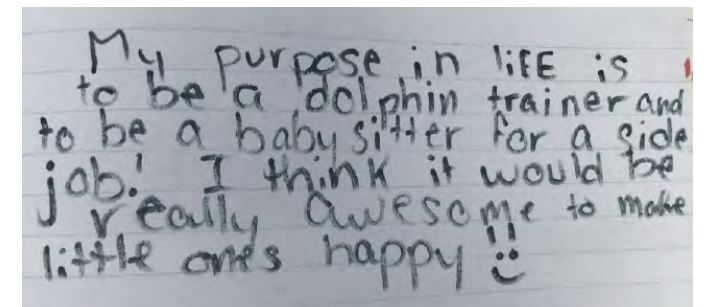 My purpose in liFE is
to be a dolphin trainer and
to be a babysitter for a side
job! I think it would be
really awesome to make
little ones happy!!